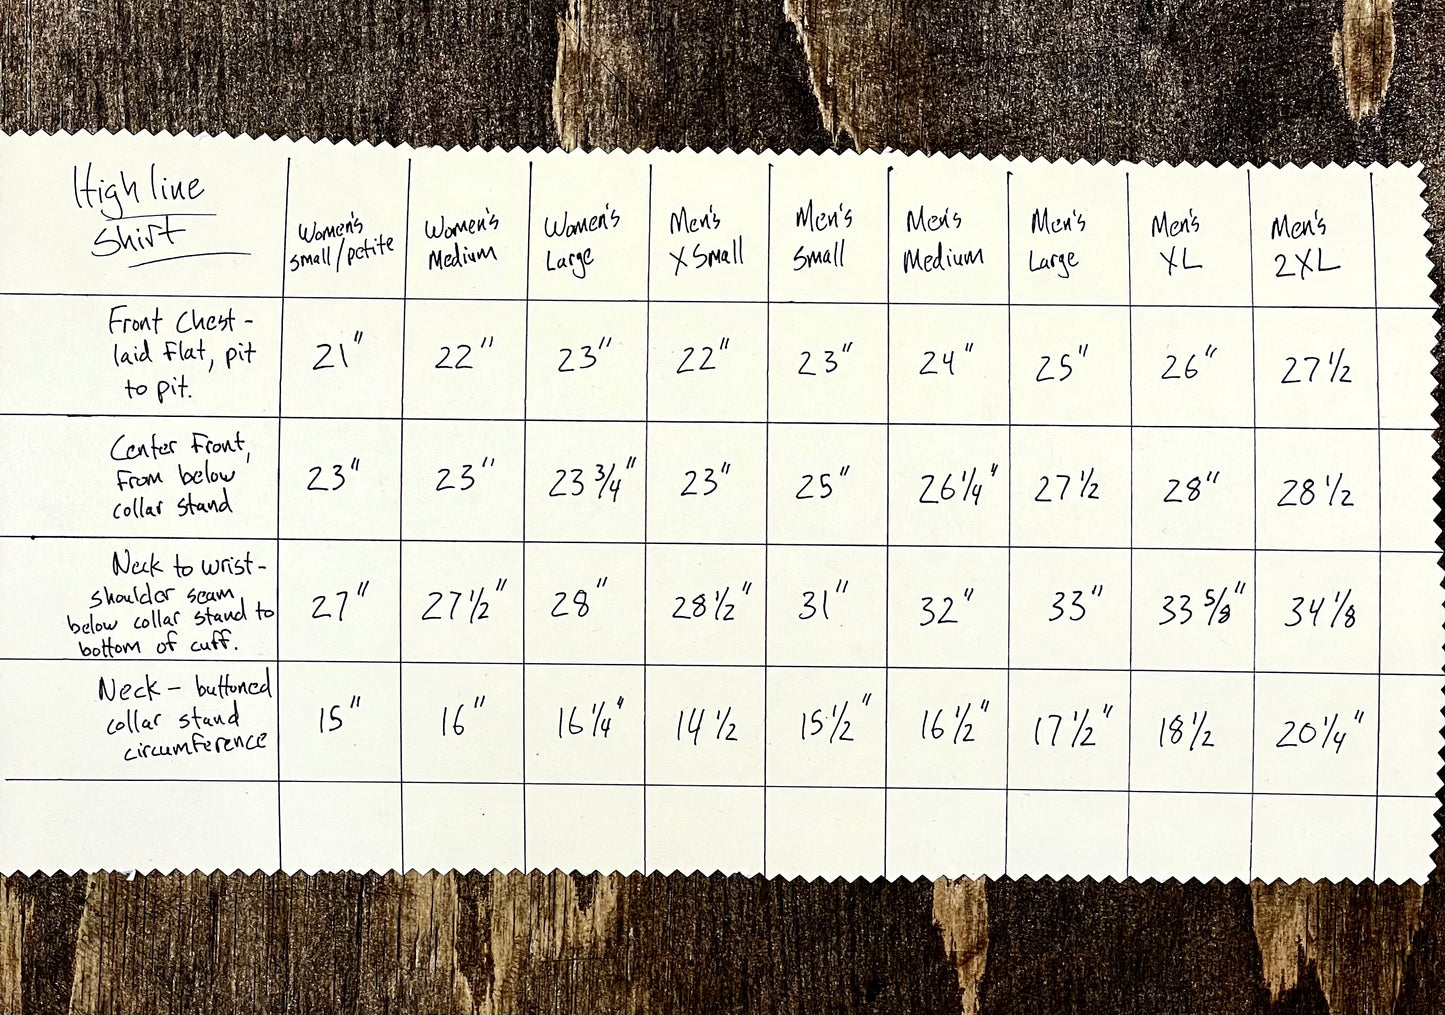 High line
Shirt
Women's
Small/petite
Women's
Medium
Women's
Large
Men's
X Small
Men's
Small
Men's
Medium
Men's
Large
Men's
XL
Men's
2XL
Front Chest -
laid flat, pit
to pit.
21" 22" 23" 22" 23" 24" 25" 26" 27 1/2
Center Front,
From below
collar stand
23" 23" 23 3/4" 23" 25" 26 1/4" 27 1/2 28" 28 1/2
Neck to wrist -
shoulder seam
below collar stand to
bottom of cuff.
27" 27 1/2" 28" 28 1/2" 31" 32" 33" 33 5/8" 34 1/8
Neck - buttoned
collar stand
circumference
15" 16" 16 1/4" 14 1/2 15 1/2" 16 1/2" 17 1/2" 18 1/2 20 1/4"